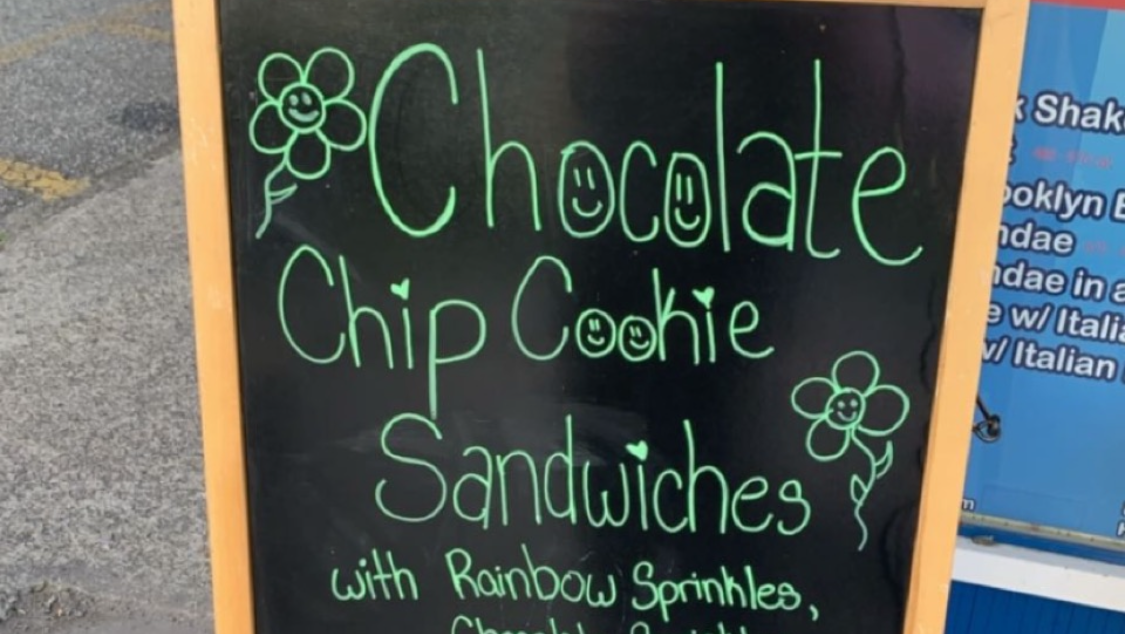 Chocolate
Chip Cookie
Sandwiches
with Rainbow Sprinkles,
Shak
ooklyn
ndae
ndae in a
e w/ Itali
w/ Italian